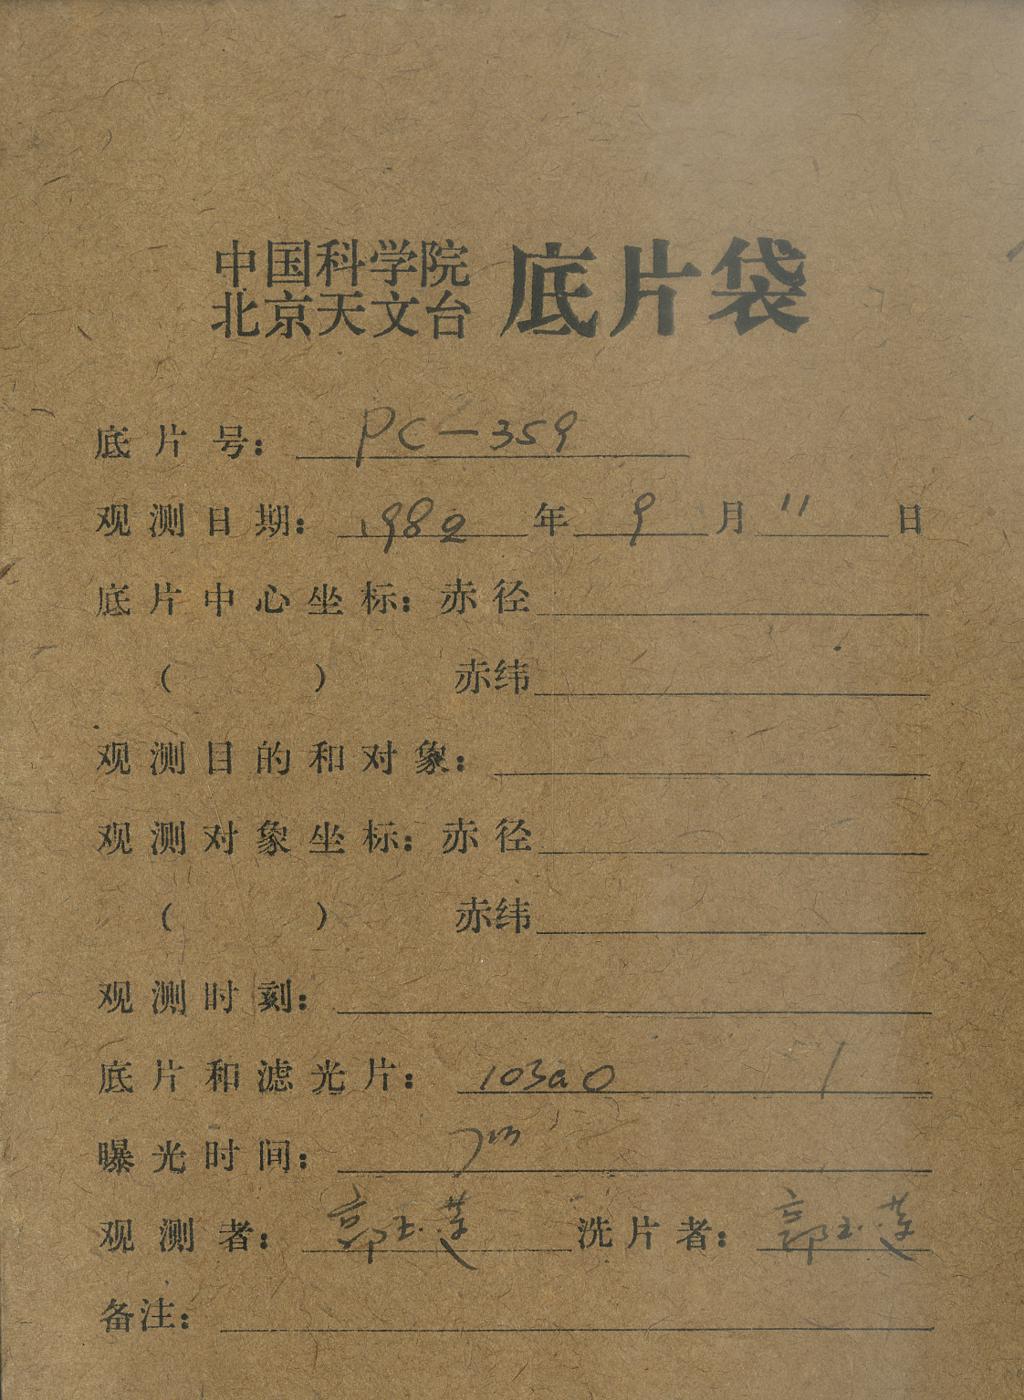 中国科学院
北京天文台 底片袋
底片号: PC-359
观测日期: 1982年9月11日
底片中心坐标: 赤径
( ) 赤纬
观测目的和对象:
观测对象坐标: 赤径
( ) 赤纬
观测时刻:
底片和滤光片: 103aO /
曝光时间: 7m
观测者: 郭玉莲 洗片者: 郭玉莲
备注: